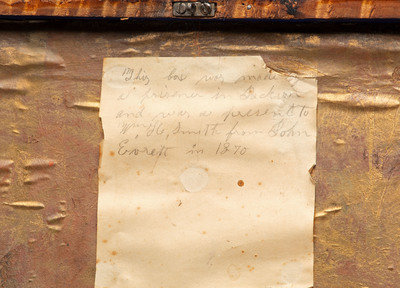 This box was made
a prisoner in Jackson
and was a present to
Wm H. Smith from John
Everett in 1870